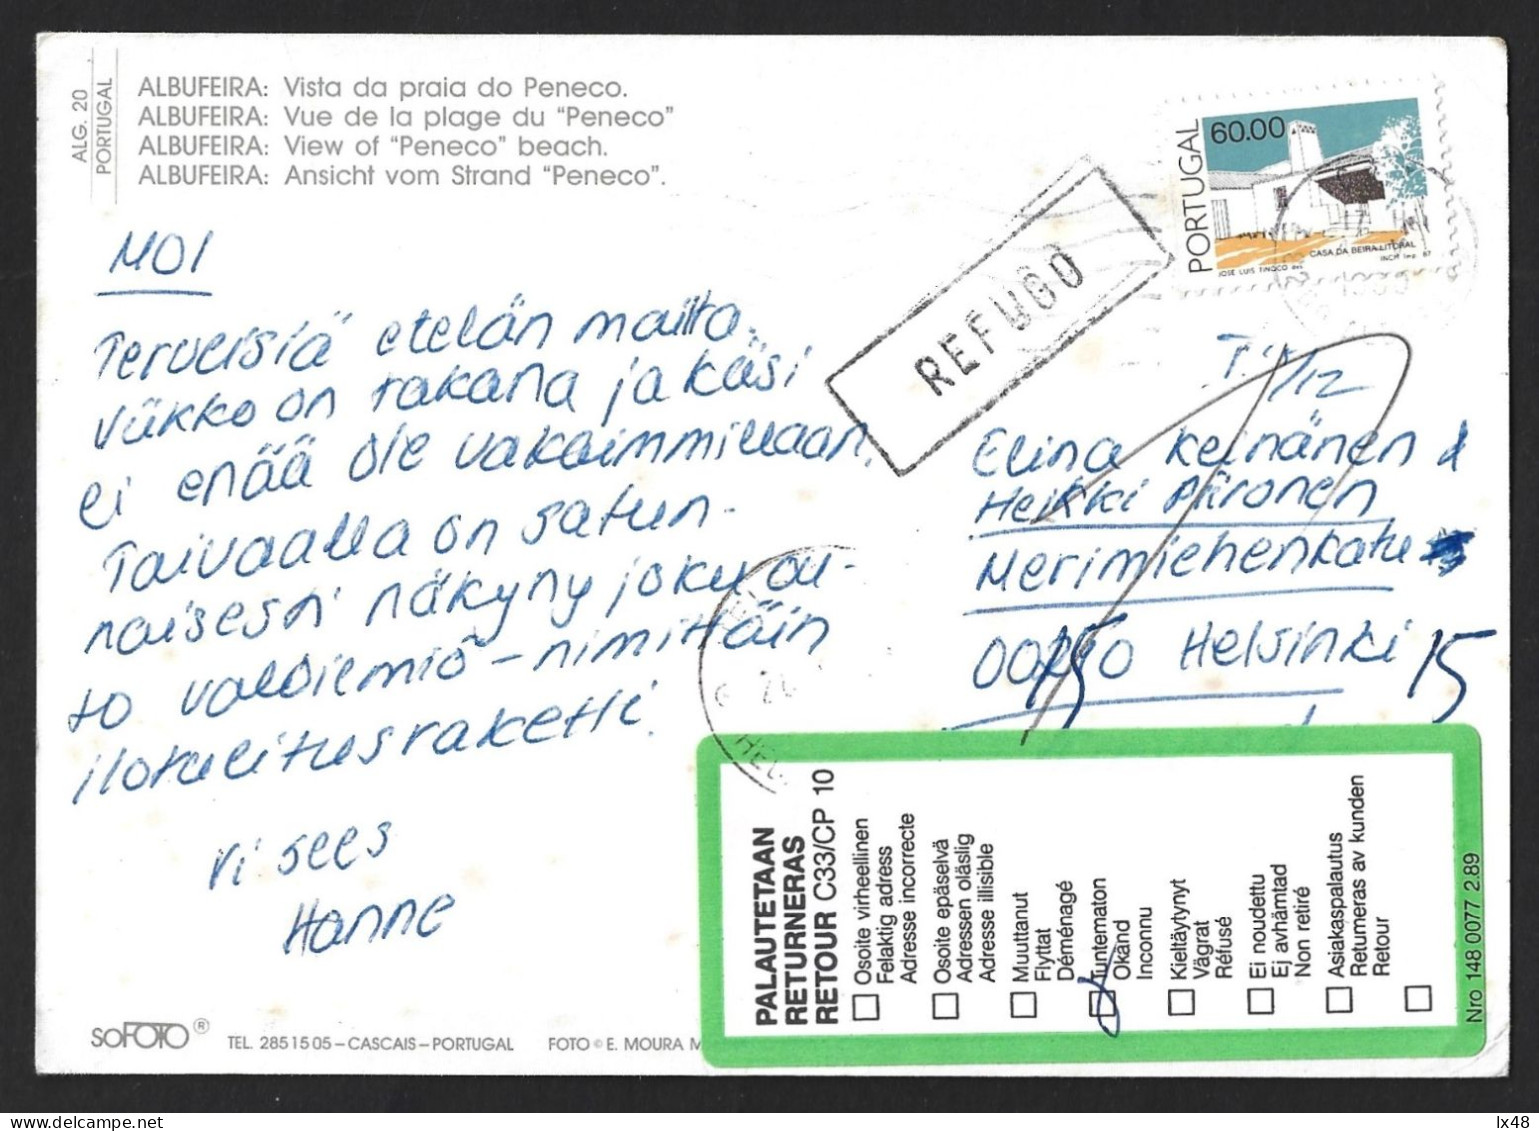 ALG. 20
PORTUGAL
ALBUFEIRA: Vista da praia do Peneco.
ALBUFEIRA: Vue de la plage du "Peneco"
ALBUFEIRA: View of "Peneco" beach.
ALBUFEIRA: Ansicht vom Strand "Peneco".
MOI
Terveisiä etelän mailta.
Viikko on takana ja käsi
ei enää ole vakaimmillaan.
Taivaalla on satun-
naisesti näkyny joku ou-
to valoilmiö - nimittäin
ilotulitusraketti.
Vi sees
Hanne
soFOTO ®
TEL. 285 15 05 – CASCAIS – PORTUGAL
FOTO © E. MOURA M
REFUGO
PORTUGAL
60.00
CASA DA BEIRA LITORAL
JOSÉ LUIS TINOCO des.
INCM Imp. 87
Elina Keinänen &
Heikki Piironen
Merimiehenkatu
Helsinki
15
HEL
PALAUTETAAN
RETURNERAS
RETOUR C33/CP 10
Osoite virheellinen
Felaktig adress
Adresse incorrecte
Osoite epäselvä
Adressen oläslig
Adresse illisible
Muuttanut
Flyttat
Déménagé
Tuntematon
Okänd
Inconnu
Kieltäytynyt
Vägrat
Réfusé
Ei noudettu
Ej avhämtad
Non retiré
Asiakaspalautus
Returneras av kunden
Retour
Nro 148 0077 2.89
lx48